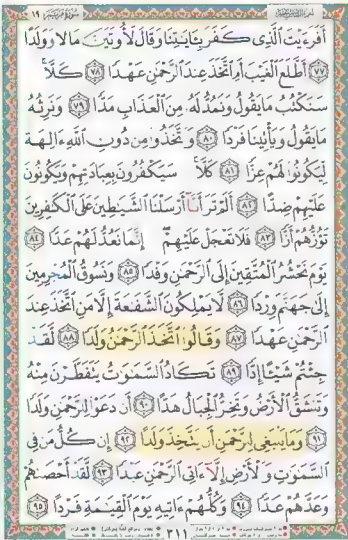 سورة مريم ١٩
أَفَرَءَيْتَ ٱلَّذِى كَفَرَ بِـَٔايَـٰتِنَا وَقَالَ لَأُوتَيَنَّ مَالًا وَوَلَدًا
٧٧ أَطَّلَعَ ٱلْغَيْبَ أَمِ ٱتَّخَذَ عِندَ ٱلرَّحْمَـٰنِ عَهْدًا ٧٨ كَلَّا
سَنَكْتُبُ مَا يَقُولُ وَنَمُدُّ لَهُۥ مِنَ ٱلْعَذَابِ مَدًّا ٧٩ وَنَرِثُهُۥ
مَا يَقُولُ وَيَأْتِينَا فَرْدًا ٨٠ وَٱتَّخَذُوا۟ مِن دُونِ ٱللَّهِ ءَالِهَةً
لِّيَكُونُوا۟ لَهُمْ عِزًّا ٨١ كَلَّا سَيَكْفُرُونَ بِعِبَادَتِهِمْ وَيَكُونُونَ
عَلَيْهِمْ ضِدًّا ٨٢ أَلَمْ تَرَ أَنَّآ أَرْسَلْنَا ٱلشَّيَـٰطِينَ عَلَى ٱلْكَـٰفِرِينَ
تَؤُزُّهُمْ أَزًّا ٨٣ فَلَا تَعْجَلْ عَلَيْهِمْ إِنَّمَا نَعُدُّ لَهُمْ عَدًّا ٨٤
يَوْمَ نَحْشُرُ ٱلْمُتَّقِينَ إِلَى ٱلرَّحْمَـٰنِ وَفْدًا ٨٥ وَنَسُوقُ ٱلْمُجْرِمِينَ
إِلَىٰ جَهَنَّمَ وِرْدًا ٨٦ لَّا يَمْلِكُونَ ٱلشَّفَـٰعَةَ إِلَّا مَنِ ٱتَّخَذَ عِندَ
ٱلرَّحْمَـٰنِ عَهْدًا ٨٧ وَقَالُوا۟ ٱتَّخَذَ ٱلرَّحْمَـٰنُ وَلَدًا ٨٨ لَّقَدْ
جِئْتُمْ شَيْـًٔا إِدًّا ٨٩ تَكَادُ ٱلسَّمَـٰوَٰتُ يَتَفَطَّرْنَ مِنْهُ
وَتَنشَقُّ ٱلْأَرْضُ وَتَخِرُّ ٱلْجِبَالُ هَدًّا ٩٠ أَن دَعَوْا۟ لِلرَّحْمَـٰنِ وَلَدًا
٩١ وَمَا يَنۢبَغِى لِلرَّحْمَـٰنِ أَن يَتَّخِذَ وَلَدًا ٩٢ إِن كُلُّ مَن فِى
ٱلسَّمَـٰوَٰتِ وَٱلْأَرْضِ إِلَّآ ءَاتِى ٱلرَّحْمَـٰنِ عَبْدًا ٩٣ لَّقَدْ أَحْصَىٰهُمْ
وَعَدَّهُمْ عَدًّا ٩٤ وَكُلُّهُمْ ءَاتِيهِ يَوْمَ ٱلْقِيَـٰمَةِ فَرْدًا ٩٥
٣١١